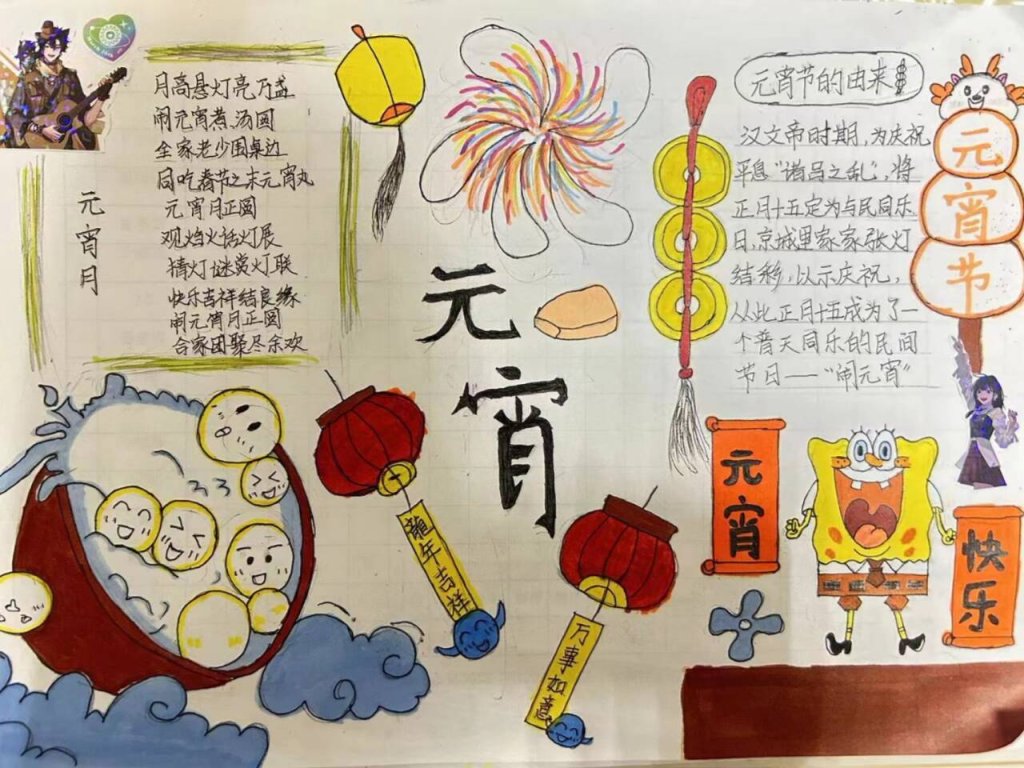 元宵月
月高悬灯亮乃盏
闹元宵煮汤圆
全家老少围桌边
同吃春节之末元宵丸
元宵月正圆
观焰火话灯展
猜灯谜赏灯联
快乐吉祥结良缘
闹元宵月正圆
合家团聚尽余欢
元宵
龍年吉祥
万事如意
元宵节的由来
汉文帝时期,为庆祝
平息"诸吕之乱",将
正月十五定为与民同乐
日,京城里家家张灯
结彩,以示庆祝,
从此正月十五成为了一
个普天同乐的民间
节日——"闹元宵"
元宵节
元宵
快乐